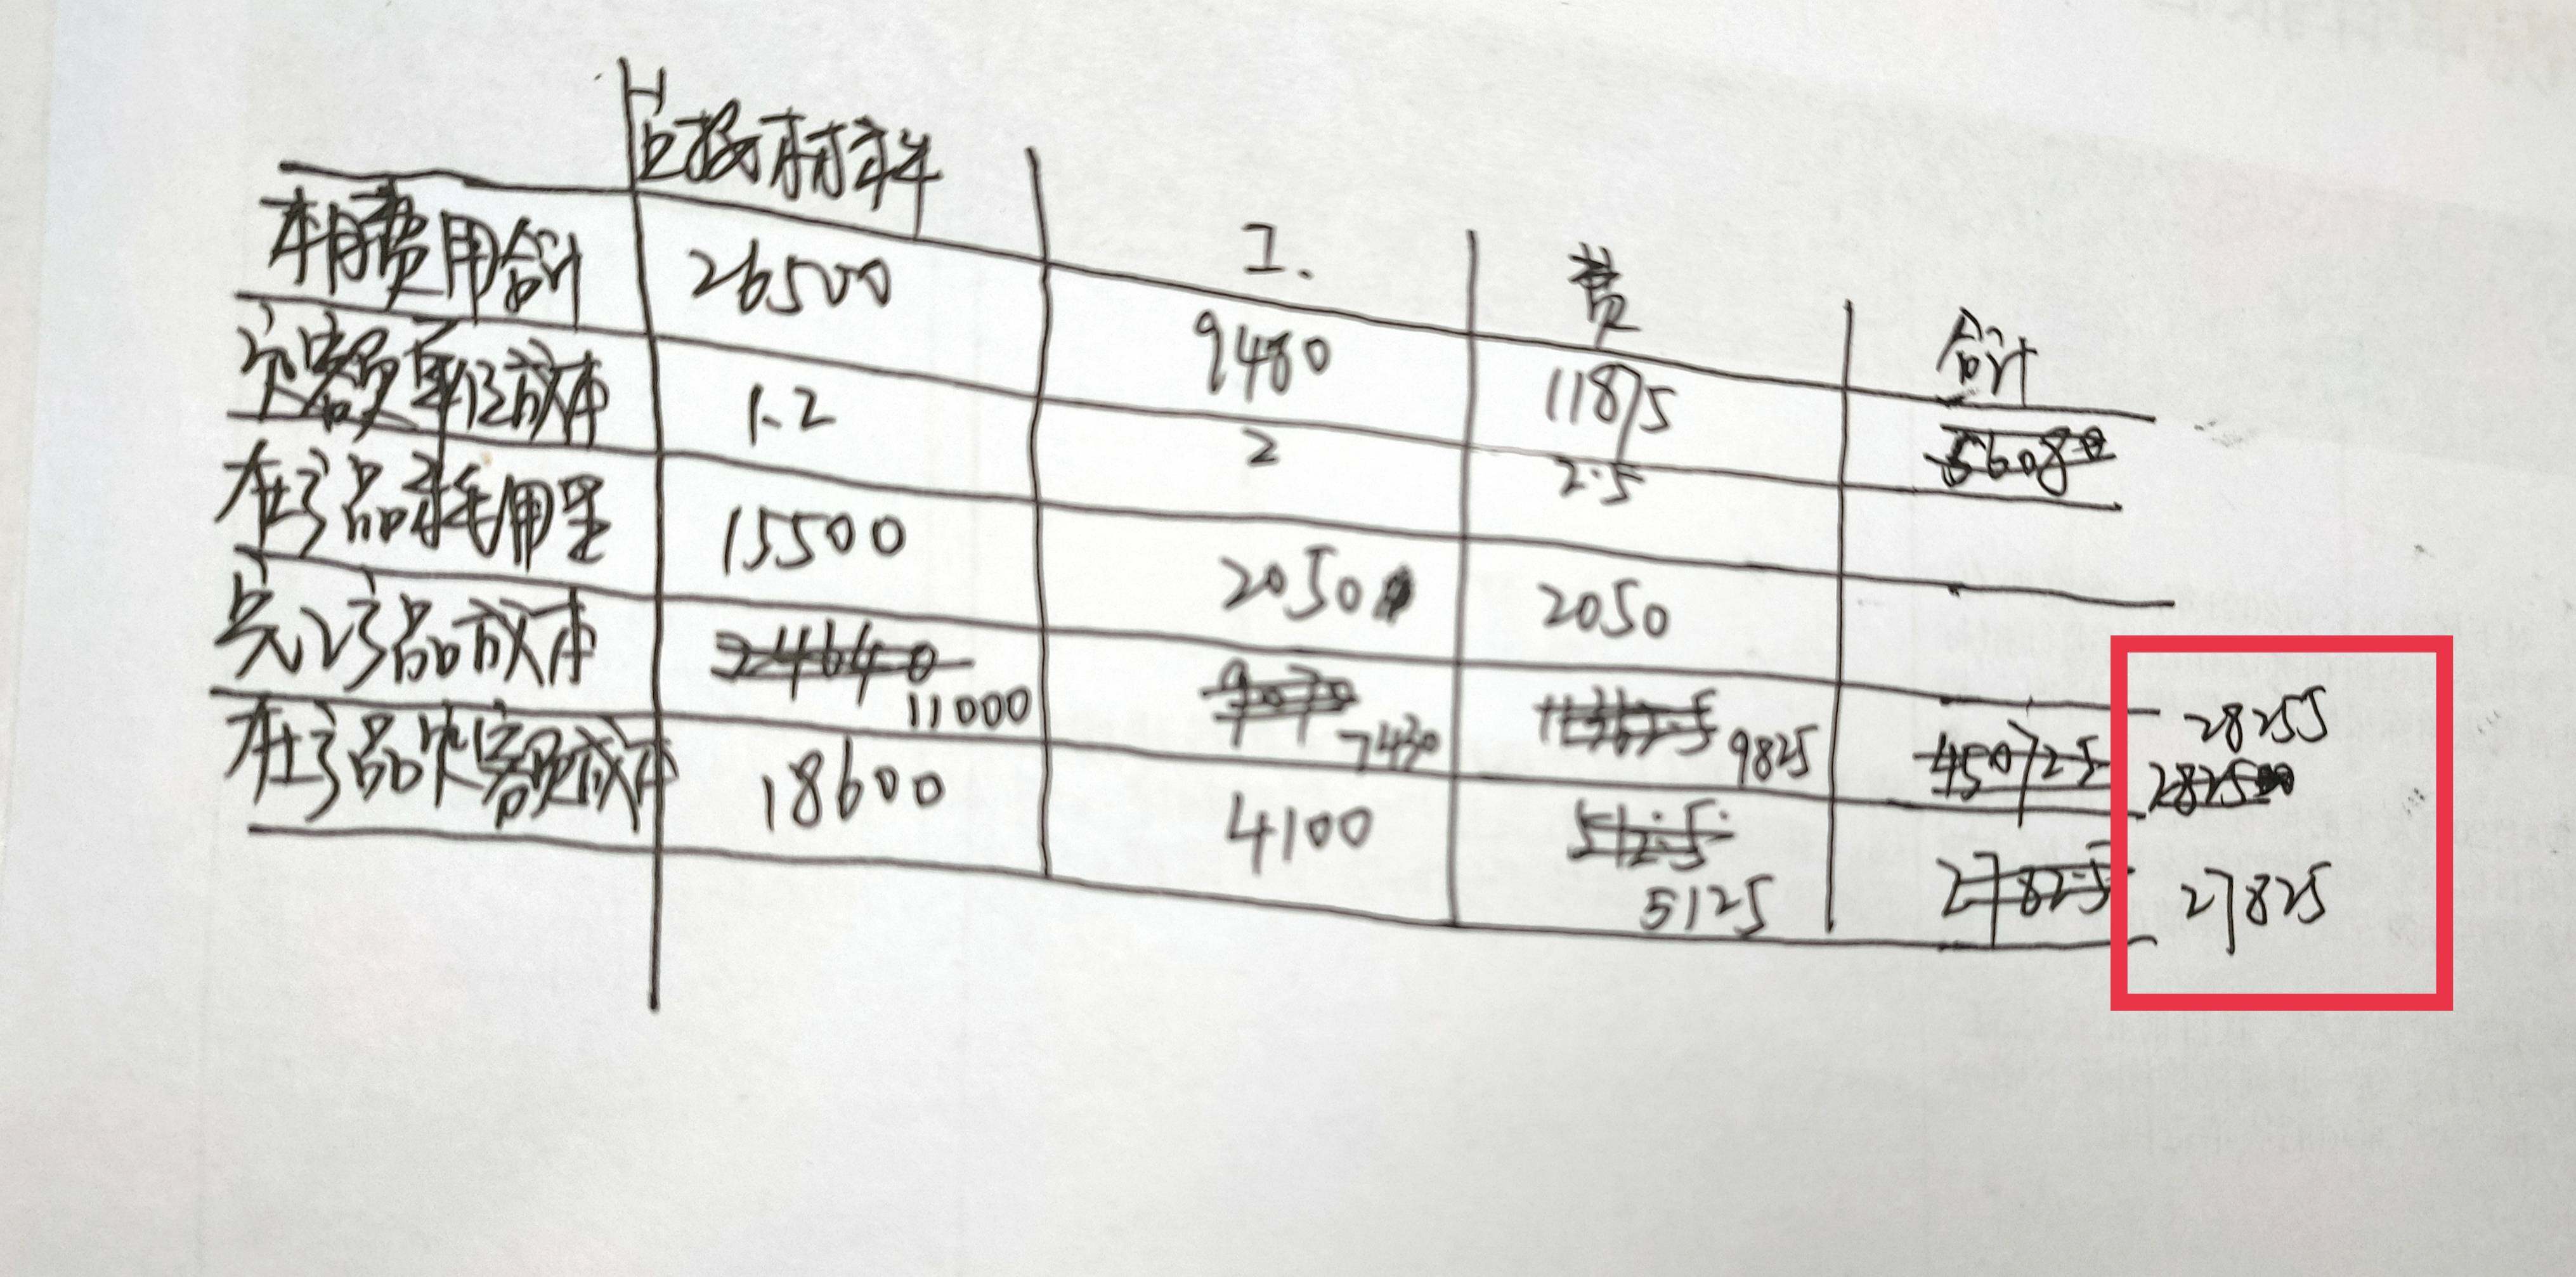 直接材料 工. 费 合计
本月费用合计 26500 9480 11875 56080
定额单位成本 1.2 2 2.5
在产品耗用量 15500 2050 2050
完工产品成本 24640 11000 7430 9825 45072.5 28255
28250
在产品定额成本 18600 4100 512.5 5125 2782.5 27825